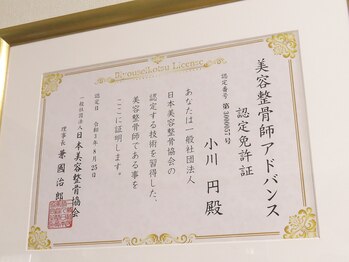 Biyouseikotsu License
美容整骨師アドバンス
認定免許証
認定番号 第3000057号
小川 円 殿
あなたは一般社団法人
日本美容整骨協会の
認定する技術を習得した、
美容整骨師である事を
ここに証明します。
認定日 令和3年8月25日
一般社団法人 日本美容整骨協会
理事長 兼國治郎